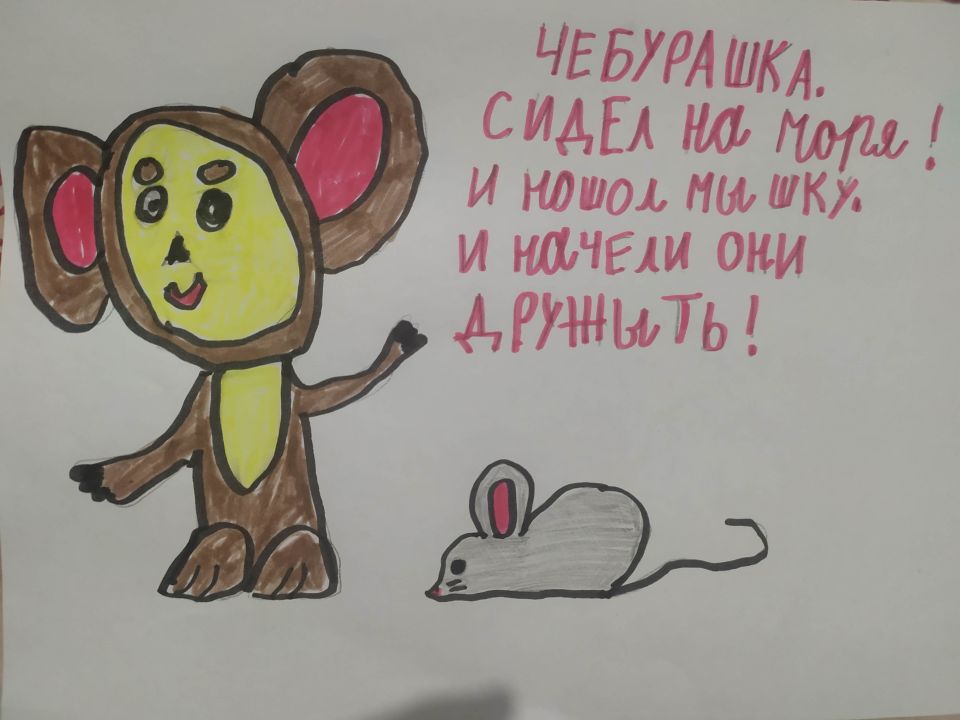 ЧЕБУРАШКА.
СИДЕЛ НА МОРЯ!
И НОШОЛ МЫШКУ.
И НАЧЕЛИ ОНИ
ДРУЖЫТЬ!